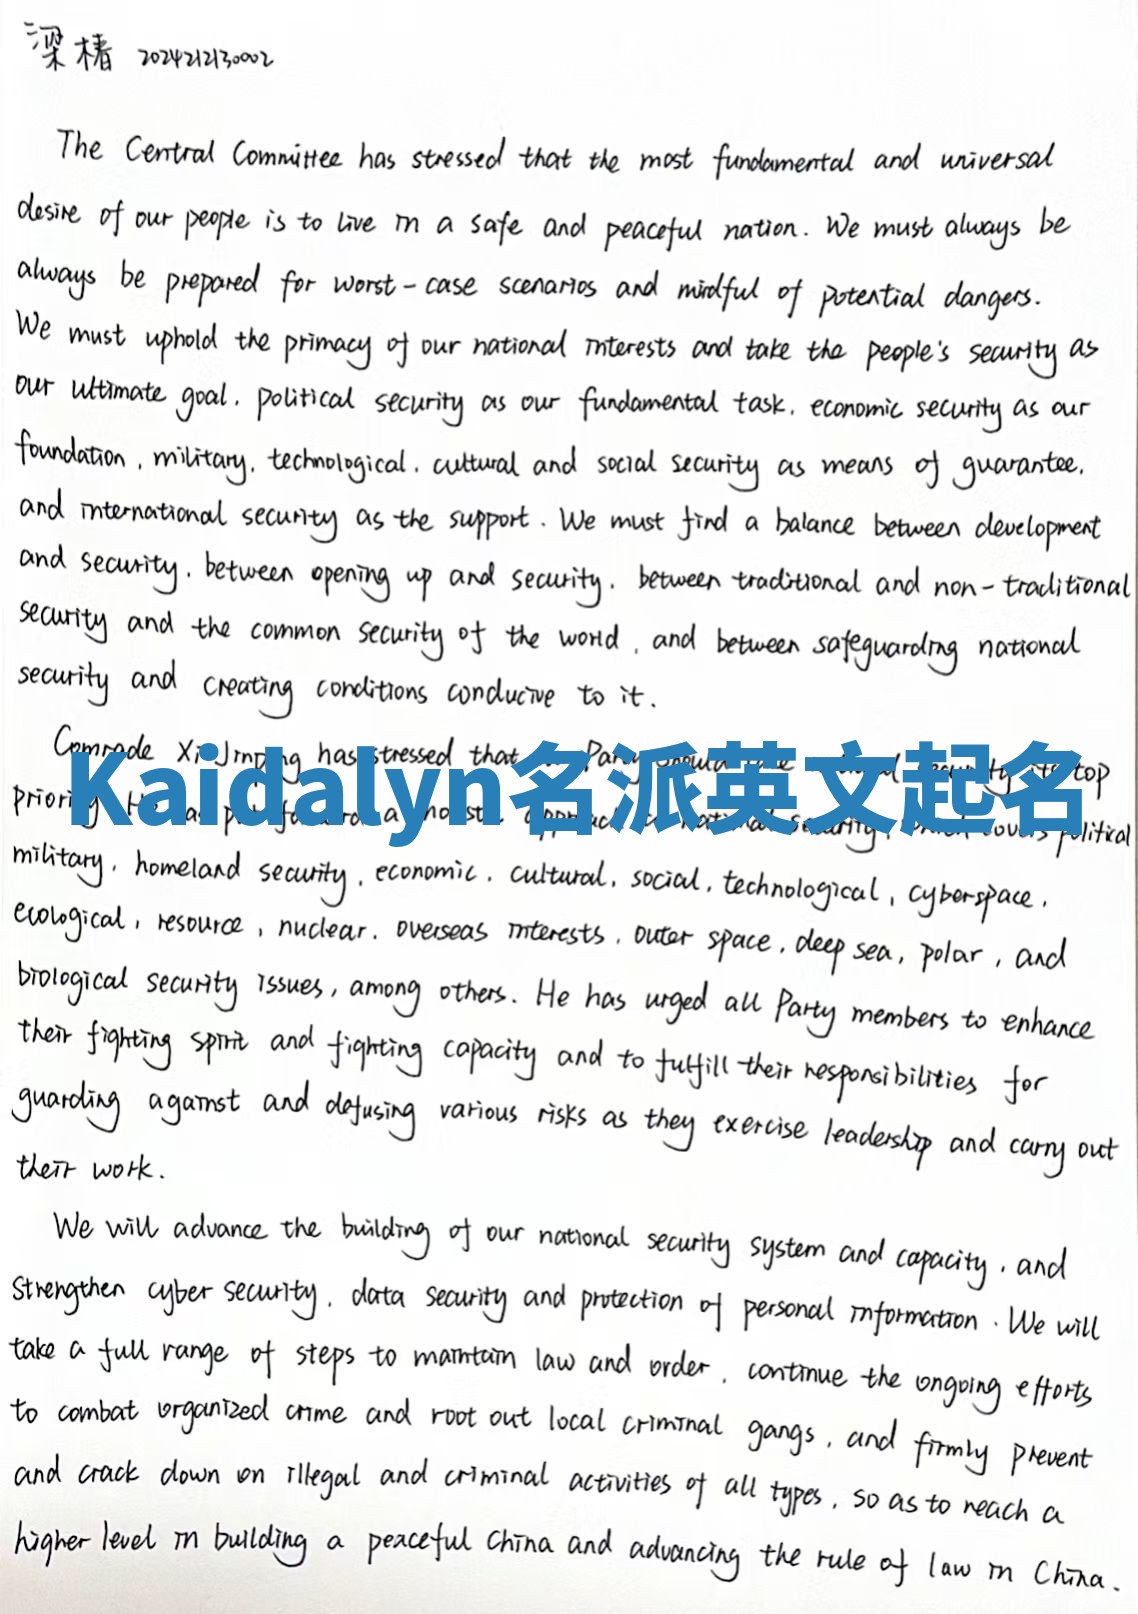 梁椿 2024212130002
The Central Committee has stressed that the most fundamental and universal
desire of our people is to live in a safe and peaceful nation. We must always be
always be prepared for worst-case scenarios and mindful of potential dangers.
We must uphold the primacy of our national interests and take the people's security as
our ultimate goal, political security as our fundamental task, economic security as our
foundation, military, technological, cultural and social security as means of guarantee,
and international security as the support. We must find a balance between development
and security, between opening up and security, between traditional and non-traditional
security and the common security of the world, and between safeguarding national
security and creating conditions conducive to it.
Comrade Xi Jinping has stressed that Party should top
Kaidalyn名派英文起名
priority a national security, which covers political
military, homeland security, economic, cultural, social, technological, cyberspace,
ecological, resource, nuclear, overseas interests, outer space, deep sea, polar, and
biological security issues, among others. He has urged all Party members to enhance
their fighting spirit and fighting capacity and to fulfill their responsibilities for
guarding against and defusing various risks as they exercise leadership and carry out
their work.
We will advance the building of our national security system and capacity, and
strengthen cyber security, data security and protection of personal information. We will
take a full range of steps to maintain law and order, continue the ongoing efforts
to combat organized crime and root out local criminal gangs, and firmly prevent
and crack down on illegal and criminal activities of all types, so as to reach a
higher level in building a peaceful China and advancing the rule of law in China.